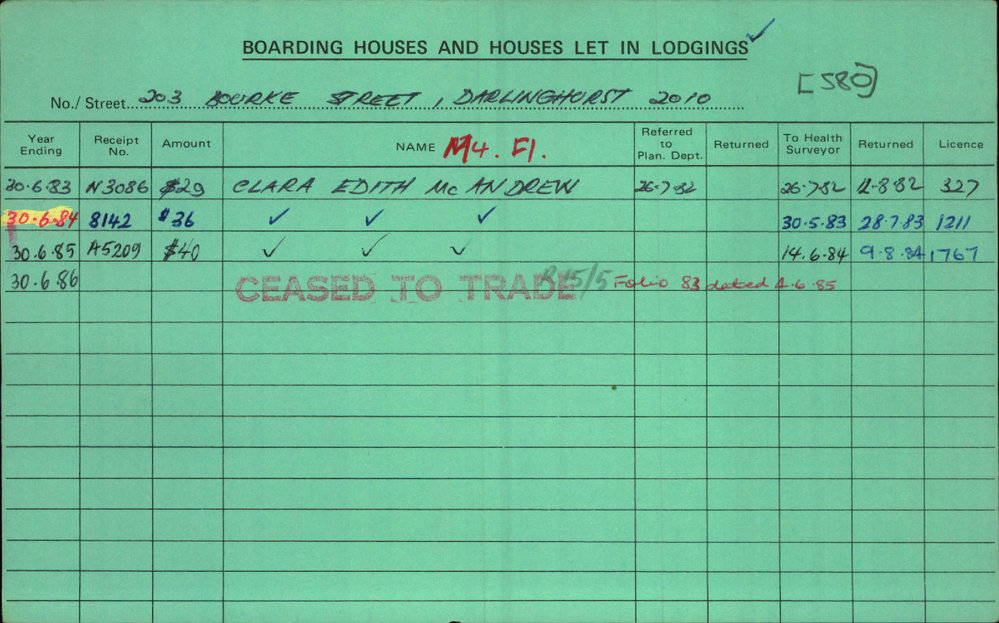 BOARDING HOUSES AND HOUSES LET IN LODGINGS ✓
[580]
No./ Street 203 BOURKE STREET, DARLINGHURST 2010
Year Ending Receipt No. Amount NAME M4. Fl. Referred to Plan. Dept. Returned To Health Surveyor Returned Licence
30.6.83 N3086 $29 CLARA EDITH McANDREW 26-7-82 26-7-82 12-8-82 327
30.6.84 8142 $36 ✓ ✓ ✓ 30.5.83 28.7.83 1211
30.6.85 A5209 $40 ✓ ✓ ✓ 14.6.84 9.8.84 1767
30.6.86 CEASED TO TRADE 15/5 Folio 83 dated 4.6.85